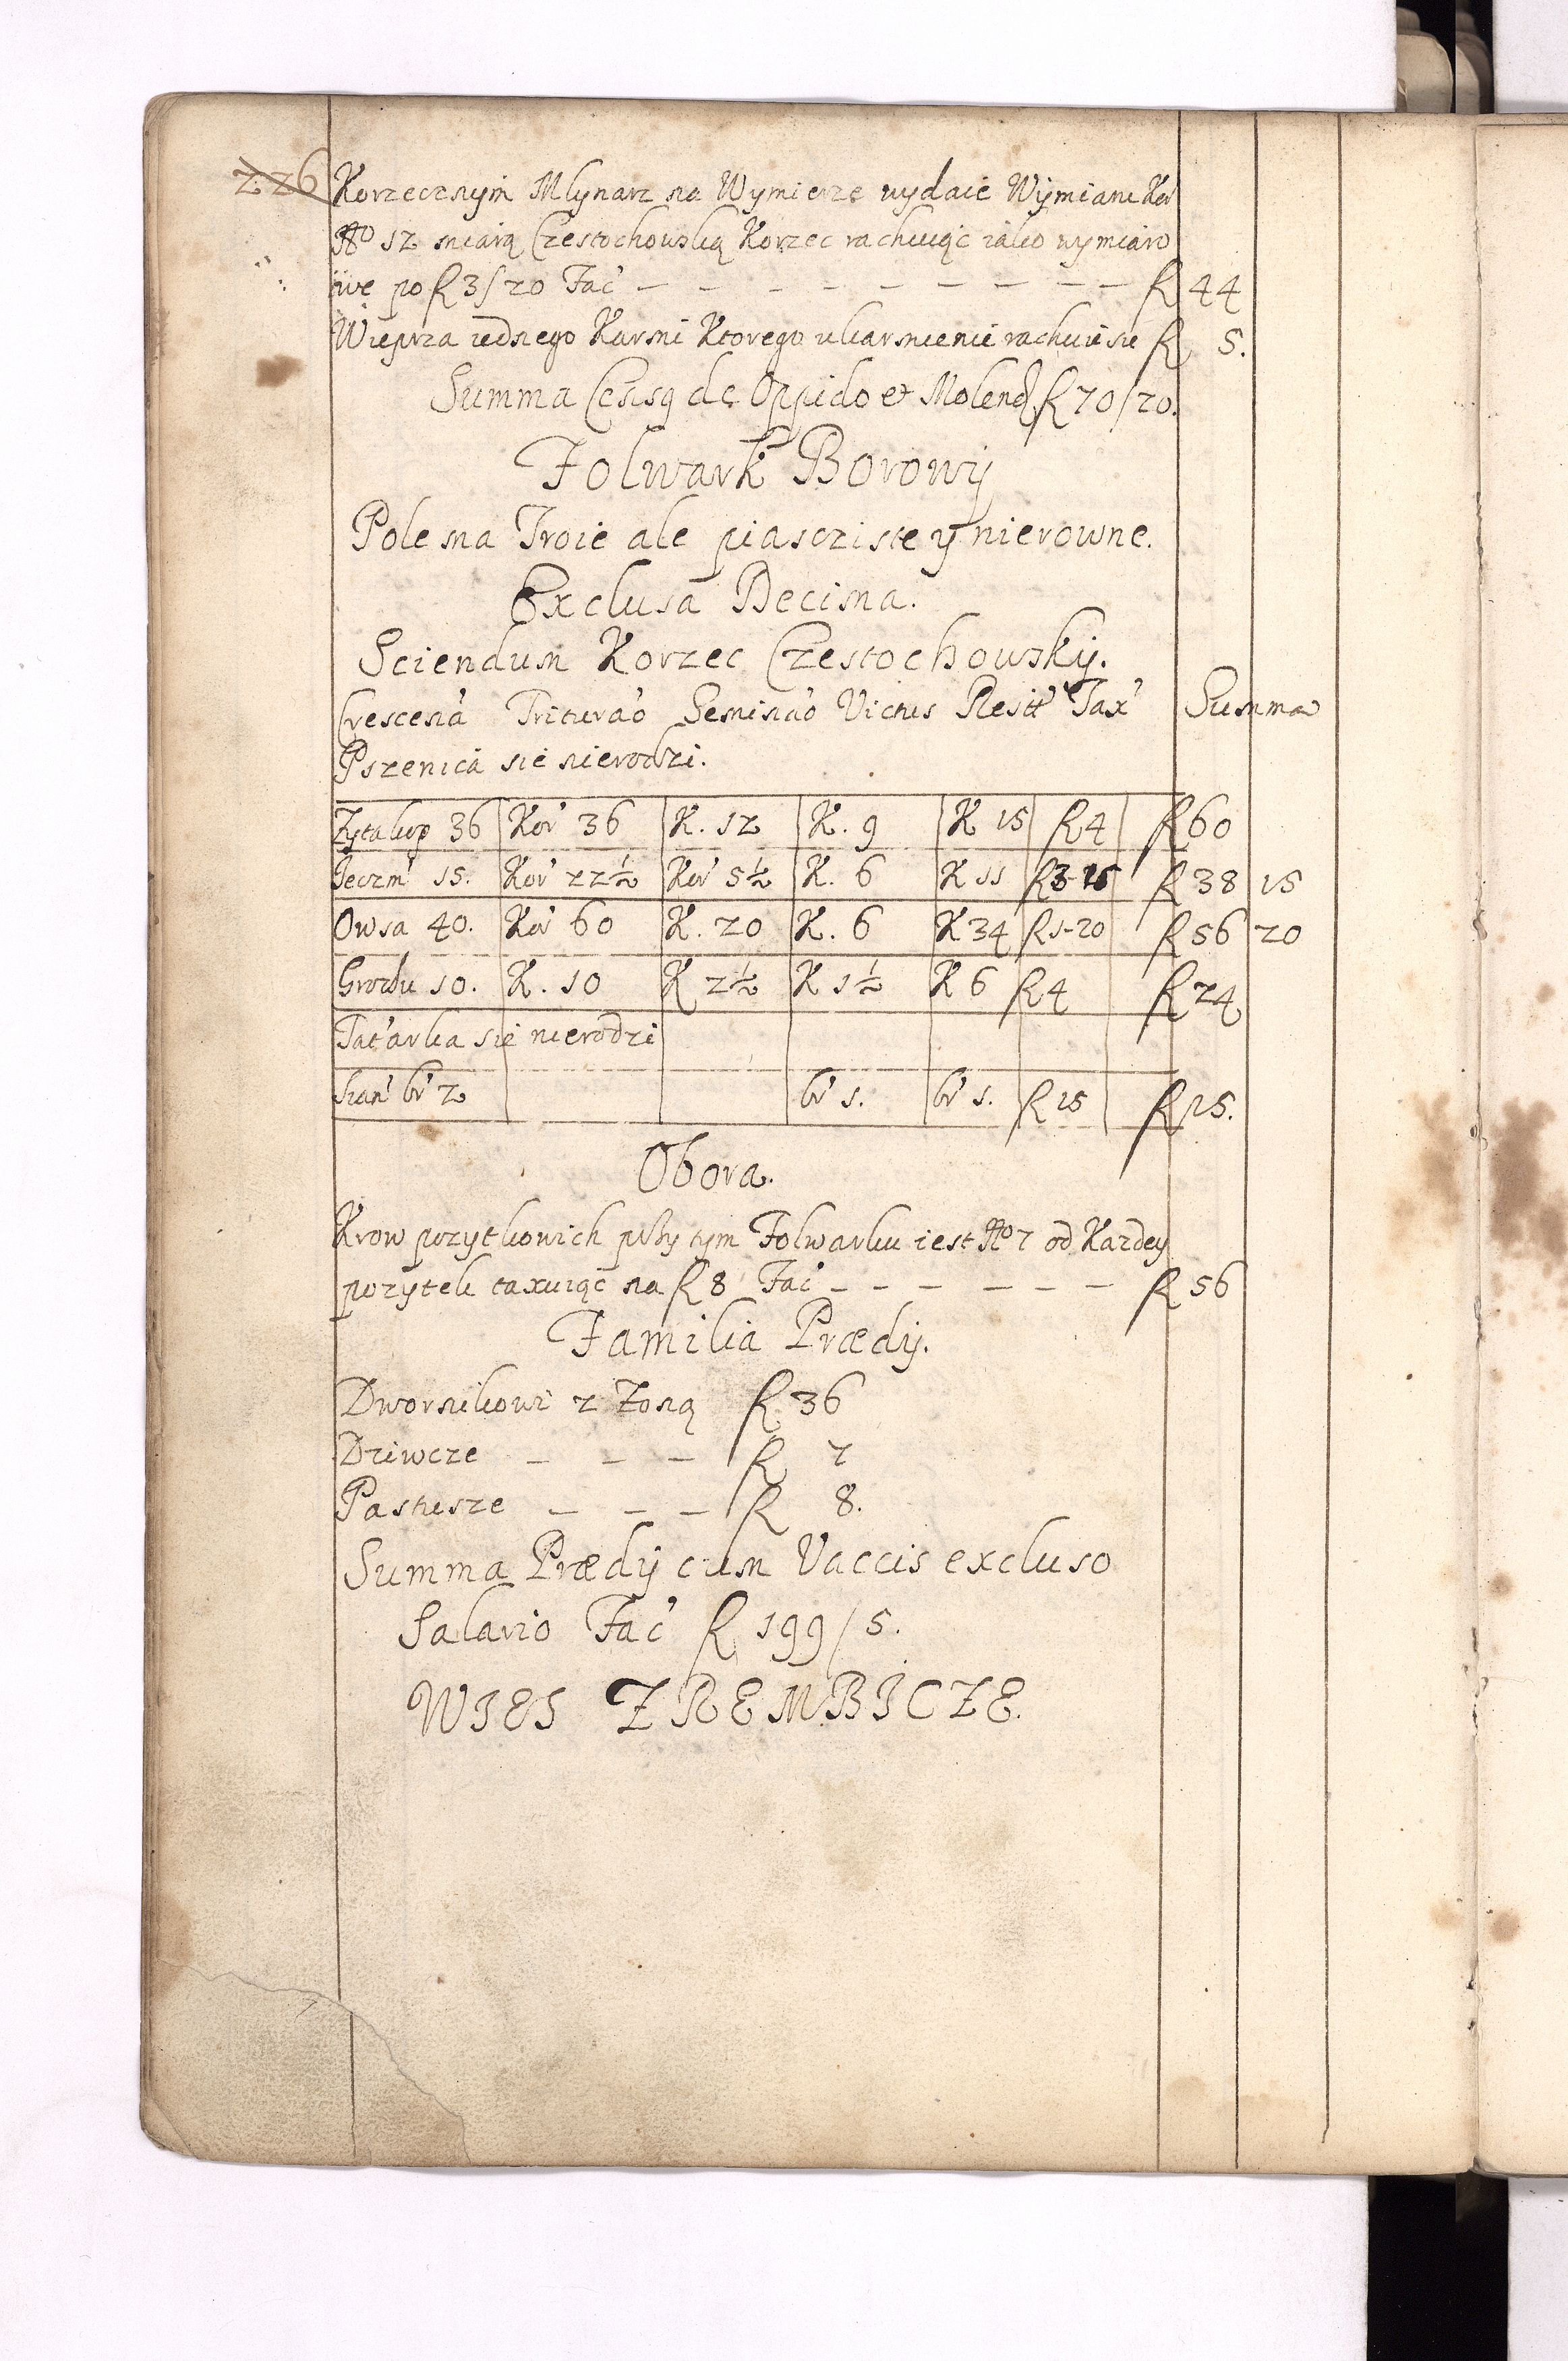 226
Korzecznym Mlynarz na Wymierze wydaie Wymiane Kor
No 12 miarą Czestochowską Korzec rachuiąc iako wymiaro
we po R 3/20 Fac R 44
Wieprza iednego Karmi Ktorego ukarmienie rachuie sie R 5.
Summa Censq de Oppido et Molend R 70/20.
Folwark Borowy
Pole na Troie ale piascziste y nierowne.
Exclusa Decima.
Sciendum Korzec Czestochowsky.
Crescena Triturao Seminao Victus Restt Tax Summa
Pszenica sie nierodzi.
Zyta kop 36 Kor 36 K. 12 K. 9 K 15 R 4 R 60
Jeczm 15. Kor 22½ Kor 5½ K. 6 K 11 R 3-15 R 38 15
Owsa 40. Kor 60 K. 20 K. 6 K 34 R 1-20 R 56 20
Grochu 10. K. 10 K 2½ K 1½ K 6 R 4 R 24
Tatarka sie nierodzi
Sian br 2 br 1. br 1. R 15 R 15.
Obora.
Krow pozytkowich przy tym Folwarku iest No 7 od Kazdey
pozytek taxuiąc na R 8 Fac R 56
Familia Prædij.
Dwornikowi z Zoną R 36
Dziwcze R 7
Pastusze R 8.
Summa Prædij cum Vaccis excluso
Salario Fac R 199/5.
WIES ZREMBICZE.